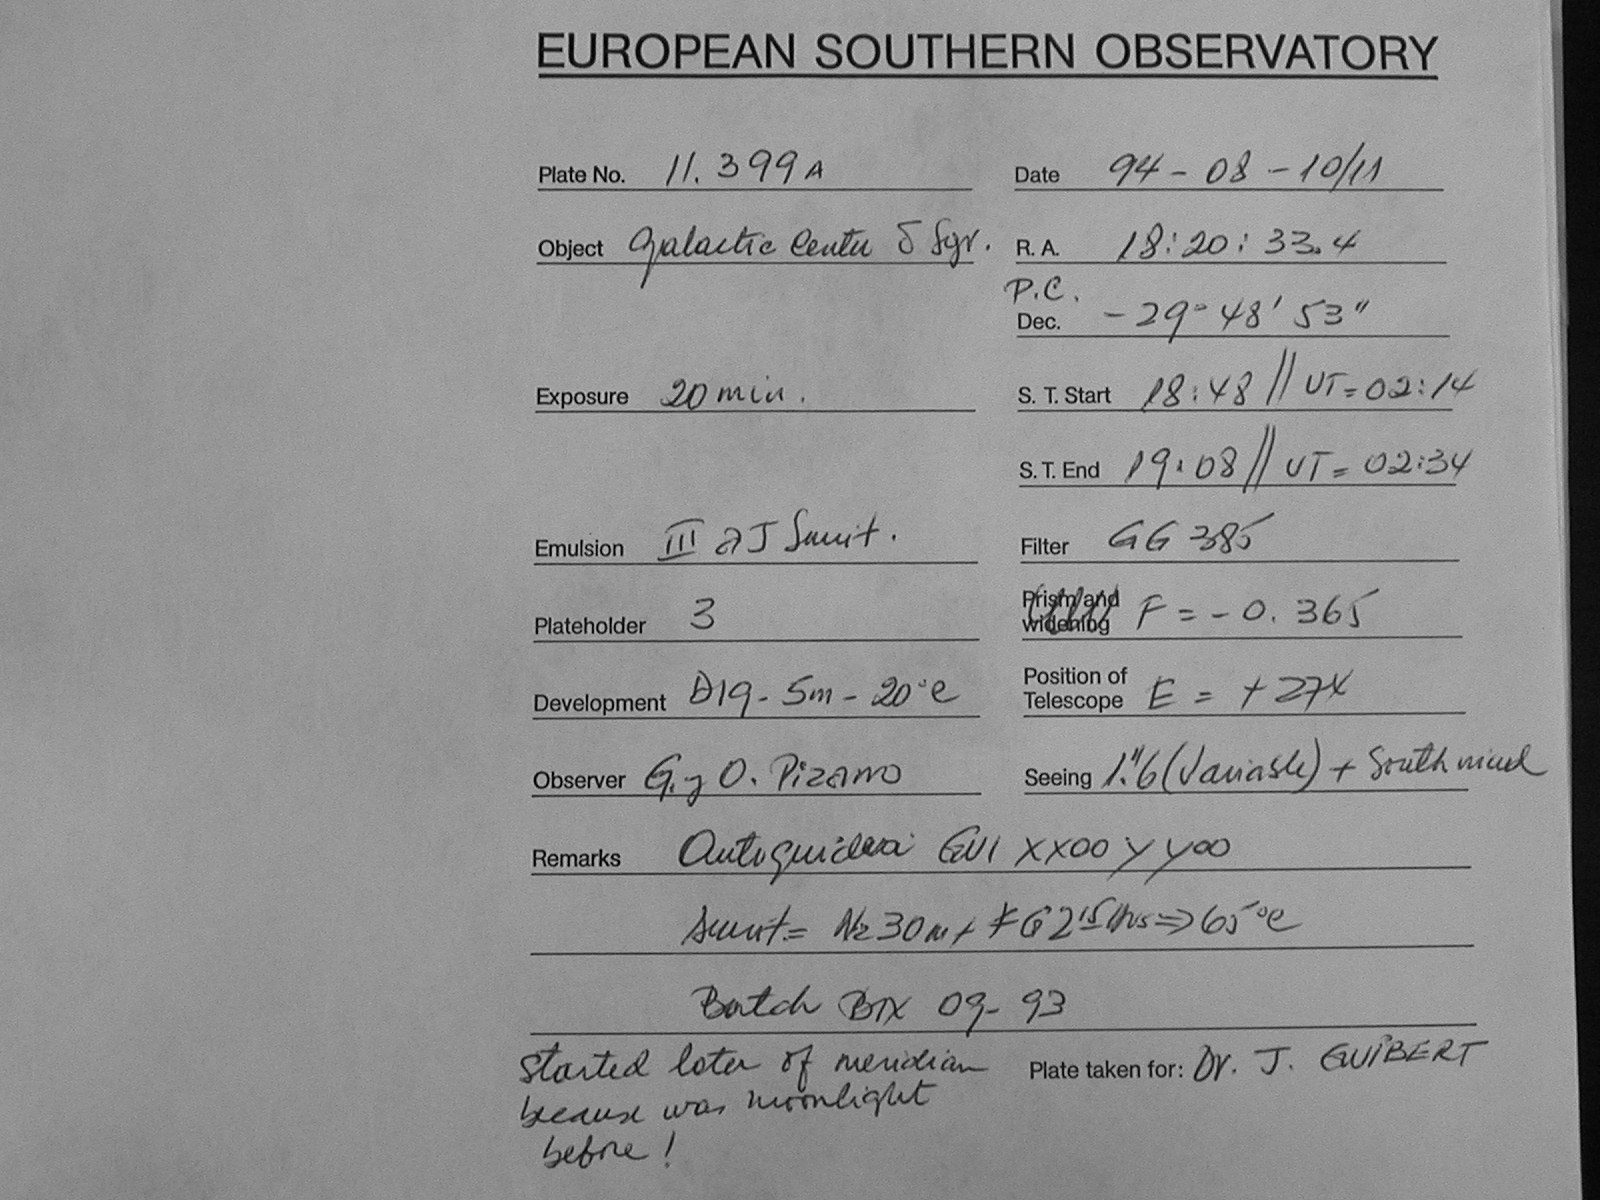 EUROPEAN SOUTHERN OBSERVATORY
Plate No. 11.399A Date 94-08-10/11
Object Galactic Center δ Sgr. R. A. 18:20:33.4
P.C.
Dec. -29° 48' 53"
Exposure 20 min. S. T. Start 18:48 // UT=02:14
S. T. End 19:08 // UT=02:34
Emulsion III aJ Filter GG 385
Plateholder 3 Prism and widening F = -0.365
Development D19-5m-20°C Position of Telescope E = +274
Observer G. y O. Pizarro Seeing 1."6 (Variable) + South wind
Remarks GUI XX00 YY00
N2 30m+ FG 2 hrs => 65°C
Batch Box 09-93
Started later of meridian Plate taken for: Dr. J. GUIBERT
because was moonlight
before!